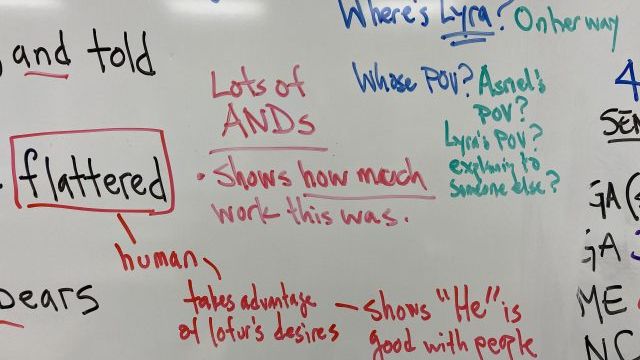 Where's Lyra? On her way
, and told
Lots of
ANDs
Whose POV? Asriel's
POV?
Lyra's POV?
explaining to
someone else?
flattered
• shows how much
work this was.
human
takes advantage
of Iofur's desires
shows "He" is
good with people
pears
4
SEN
GA (
GA
ME
NC